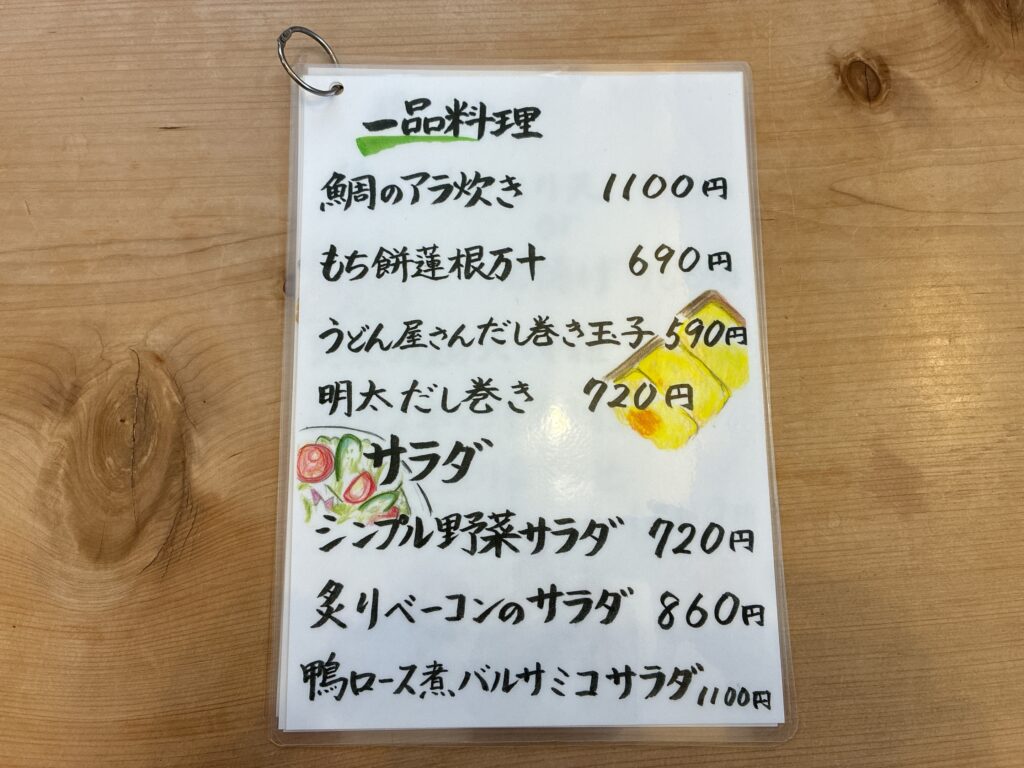 一品料理
鯛のアラ炊き 1100円
もち餅蓮根万十 690円
うどん屋さんだし巻き玉子 590円
明太だし巻き 720円
サラダ
シンプル野菜サラダ 720円
炙りベーコンのサラダ 860円
鴨ロース煮、バルサミコサラダ 1100円